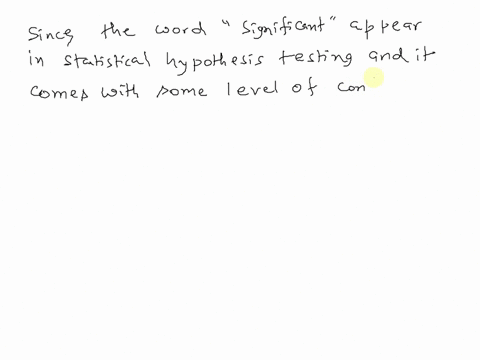 Since the word "significant" appear
in statistical hypothesis testing and it
comes with some level of con